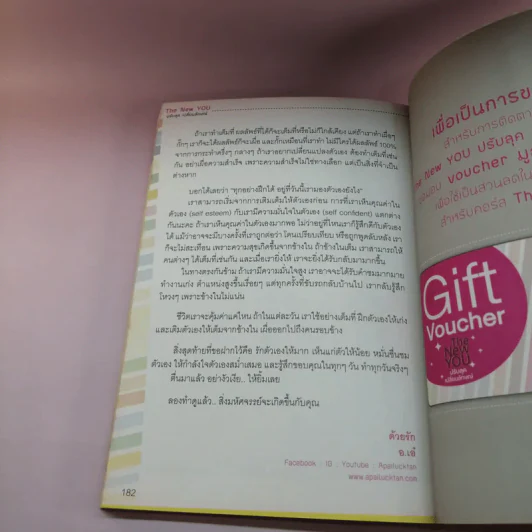 The New YOU
ปรับลุค เปลี่ยนลักษณ์
ถ้าเราทำเต็มที่ ผลลัพธ์ที่ได้ก็จะเต็มที่หรือไม่ก็ใกล้เคียง แต่ถ้าเราทำเนือยๆ
กั๊กๆ เราก็จะได้ผลลัพธ์กึ่งจะเนือย และกั๊กเหมือนที่เราทำ ไม่มีใครได้ผลลัพธ์ 100%
จากการกระทำครึ่งๆ กลางๆ ถ้าเราอยากเปลี่ยนแปลงตัวเอง ต้องทำเต็มที่เช่น
กัน อย่าเผื่อความสำเร็จ เพราะความสำเร็จไม่ใช่ทางเลือก แต่เป็นสิ่งที่จำเป็น
ต่างหาก
บอกได้เลยว่า "ทุกอย่างฝึกได้ อยู่ที่วันนี้เรามองตัวเองยังไง"
เราสามารถเริ่มจากการเติมเต็มให้ตัวเองก่อน การที่เราเห็นคุณค่าใน
ตัวเอง (self esteem) กับเรามีความมั่นใจในตัวเอง (self confident) แตกต่าง
กันนะคะ ถ้าเราเห็นคุณค่าในตัวเองมากพอ ไม่ว่าอยู่ที่ไหนเราก็รู้สึกดีกับตัวเอง
ได้ แม้ว่าอาจจะมีบางครั้งที่เราถูกต่อว่า โดนเปรียบเทียบ หรือถูกพูดลับหลัง เรา
ก็จะไม่สะเทือน เพราะความสุขเกิดขึ้นจากข้างใน ถ้าข้างในเต็ม เราสามารถให้
คนต่างๆ ได้เต็มที่เช่นกัน และเมื่อเรายิ่งให้ เราจะยิ่งได้รับกลับมามากขึ้น
ในทางตรงกันข้าม ถ้าเรามีความมั่นใจสูง เราอาจจะได้รับคำชมมากมาย
ทำงานเก่ง ตำแหน่งสูงขึ้นเรื่อยๆ แต่ทุกครั้งที่ขับรถกลับบ้านไป เรากลับรู้สึก
โหวงๆ เพราะข้างในไม่แน่น
ชีวิตเราจะคุ้มค่าแค่ไหน ถ้าในแต่ละวัน เราใช้อย่างเต็มที่ ฝึกตัวเองให้เก่ง
และเติมตัวเองให้เต็มจากข้างใน เผื่อออกไปถึงคนรอบข้าง
สิ่งสุดท้ายที่ขอฝากไว้คือ รักตัวเองให้มาก เห็นแก่ตัวให้น้อย หมั่นชื่นชม
ตัวเอง ให้กำลังใจตัวเองสม่ำเสมอ และรู้สึกขอบคุณในทุกๆ วัน ทำทุกวันจริงๆ
ตื่นมาแล้ว อย่างัวเงีย.. ให้ยิ้มเลย
ลองทำดูแล้ว.. สิ่งมหัศจรรย์จะเกิดขึ้นกับคุณ
ด้วยรัก
อ.เอ๋
Facebook : IG : Youtube : Apailucktan
www.apailucktan.com
182
เพื่อเป็นการข
สำหรับการติดตา
New YOU ปรับลุค
voucher
เพื่อใช้เป็นส่วนลดใน
สำหรับคอร์ส Th
Gift
Voucher
The
New
YOU
ปรับลุค
เปลี่ยนลักษณ์